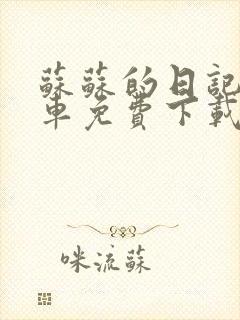 蘇蘇的日記
車免費下載
咪流蘇